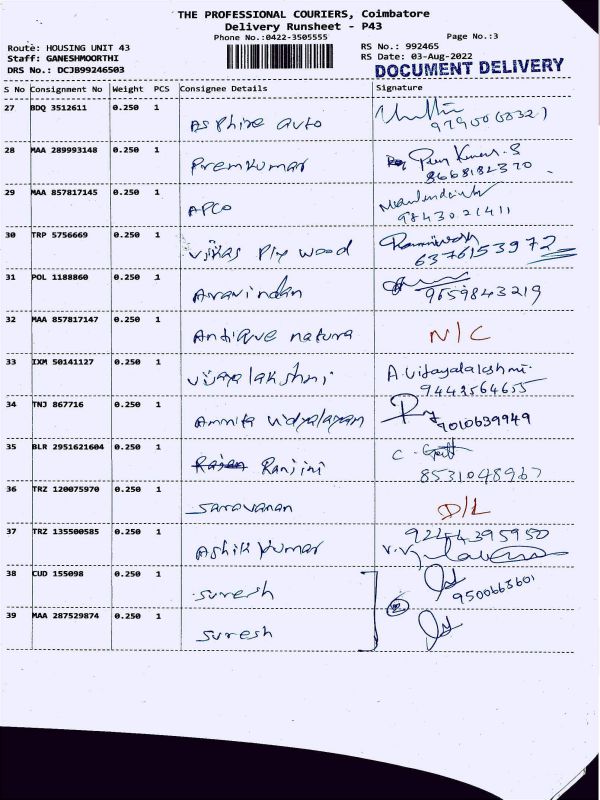 THE PROFESSIONAL COURIERS, Coimbatore
Delivery Runsheet - P43
Phone No.:0422-3505555
Page No.:3
Route: HOUSING UNIT 43
RS No.: 992465
Staff: GANESHMOORTHI
RS Date: 03-Aug-2022
DRS No.: DCJB99246503
DOCUMENT DELIVERY
S No Consignment No Weight PCS Consignee Details Signature
27 BDQ 3512611 0.250 1 Asphire auto
28 MAA 289993148 0.250 1 Premkumar
8668182370
29 MAA 857817145 0.250 1 APCO
9843021411
30 TRP 5756669 0.250 1 vjkas Ply wood
6376153972
31 POL 1188860 0.250 1 Aravindan
9659843219
32 MAA 857817147 0.250 1 Antique natura N/C
33 IXM 50141127 0.250 1 vijayalakshmi A. Vijayalakshmi.
9442564655
34 TNJ 867716 0.250 1 Amrita vidyalayam
9010639949
35 BLR 2951621604 0.250 1 Ranjini
8531048967
36 TRZ 120075970 0.250 1 Saravanan D/L
37 TRZ 135500585 0.250 1 Ashik kumar
38 CUD 155098 0.250 1 suresh
9500663601
39 MAA 287529874 0.250 1 suresh
2